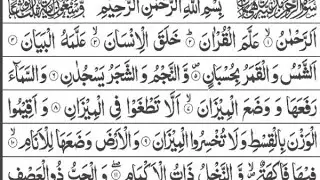 بِسْمِ اللهِ الرَّحْمٰنِ الرَّحِيْمِ
اَلرَّحْمٰنُ ۙ﴿۱﴾ عَلَّمَ الْقُرْاٰنَ ؕ﴿۲﴾ خَلَقَ الْاِنْسَانَ ۙ﴿۳﴾ عَلَّمَهُ الْبَيَانَ ﴿۴﴾
اَلشَّمْسُ وَ الْقَمَرُ بِحُسْبَانٍ ۪﴿۵﴾ وَّ النَّجْمُ وَ الشَّجَرُ يَسْجُدٰنِ ﴿۶﴾ وَ السَّمَآءَ
رَفَعَهَا وَ وَضَعَ الْمِيْزَانَ ۙ﴿۷﴾ اَلَّا تَطْغَوْا فِي الْمِيْزَانِ ﴿۸﴾ وَ اَقِيْمُوا
الْوَزْنَ بِالْقِسْطِ وَ لَا تُخْسِرُوا الْمِيْزَانَ ﴿۹﴾ وَ الْاَرْضَ وَضَعَهَا لِلْاَنَامِ ۙ﴿۱۰﴾
فِيْهَا فَاكِهَةٌ ۪ۙ وَّ النَّخْلُ ذَاتُ الْاَكْمَامِ ۖ﴿۱۱﴾ وَ الْحَبُّ ذُو الْعَصْفِ